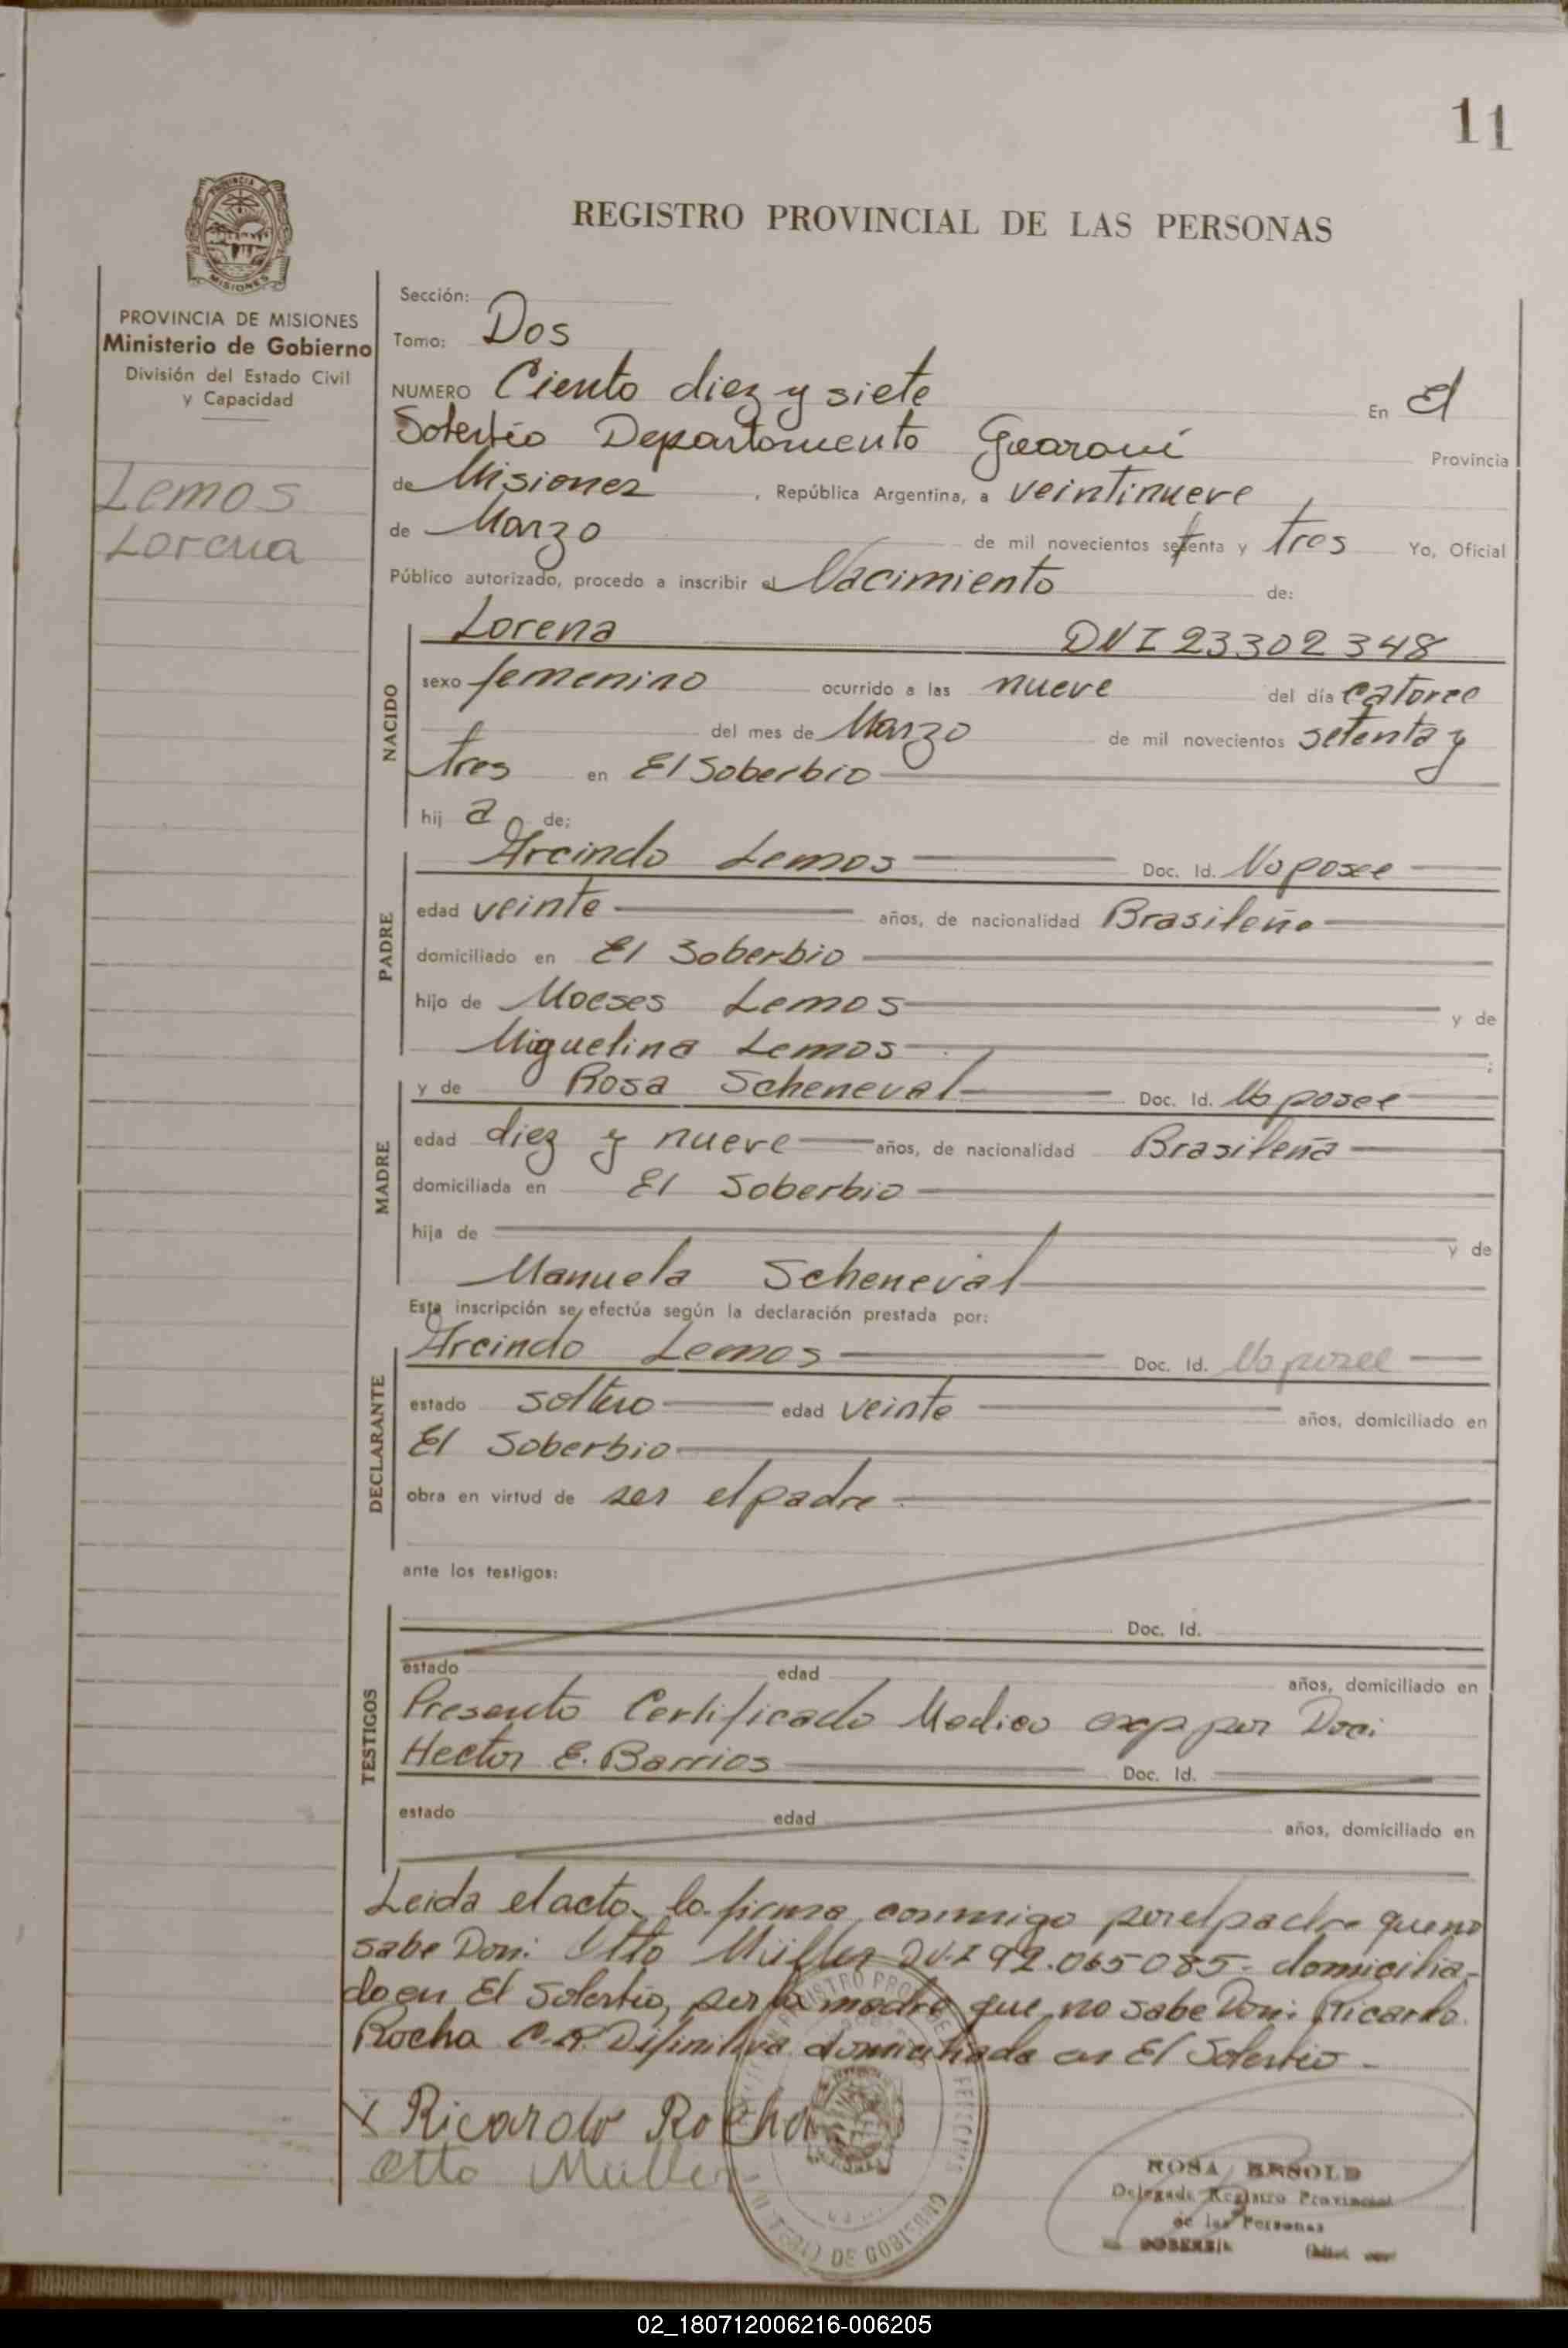 11
PROVINCIA DE
MISIONES
REGISTRO PROVINCIAL DE LAS PERSONAS
PROVINCIA DE MISIONES
Ministerio de Gobierno
División del Estado Civil
y Capacidad
Lemos
Lorena
Sección:
Tomo: Dos
NUMERO Ciento diez y siete En El
Soberbio Departamento Guaraní Provincia
de Misiones, República Argentina, a veintinueve
de Marzo de mil novecientos setenta y tres Yo, Oficial
Público autorizado, procedo a inscribir el Nacimiento de:
NACIDO
Lorena DNI 23302348
sexo femenino ocurrido a las nueve del día catorce
del mes de Marzo de mil novecientos setenta y
tres en El Soberbio
hij a de:
PADRE
Arcindo Lemos Doc. Id. No posee
edad veinte años, de nacionalidad Brasileño
domiciliado en El Soberbio
hijo de Moeses Lemos y de
Miguelina Lemos ;
MADRE
y de Rosa Scheneval Doc. Id. No posee
edad diez y nueve años, de nacionalidad Brasileña
domiciliada en El Soberbio
hija de y de
Manuela Scheneval
Esta inscripción se efectúa según la declaración prestada por:
DECLARANTE
Arcindo Lemos Doc. Id. No posee
estado soltero edad veinte años, domiciliado en
El Soberbio
obra en virtud de ser el padre
ante los testigos:
TESTIGOS
Doc. Id.
estado edad años, domiciliado en
Presento Certificado Medico exp por Don:
Hector E. Barrios Doc. Id.
estado edad años, domiciliado en
Leida el acta, la firma conmigo por el padre que no
sabe Don: Otto Müller DNI 92.065085- domicilia-
do en El Soberbio, por la madre que no sabe Don: Ricardo
Rocha C.R. Difinitiva domiciliado en El Soberbio -
X Ricardo Rocha
Otto Müller
ROSA BESOLD
Delegada Registro Provincial
de las Personas
DE GOBIERNO
02_180712006216-006205